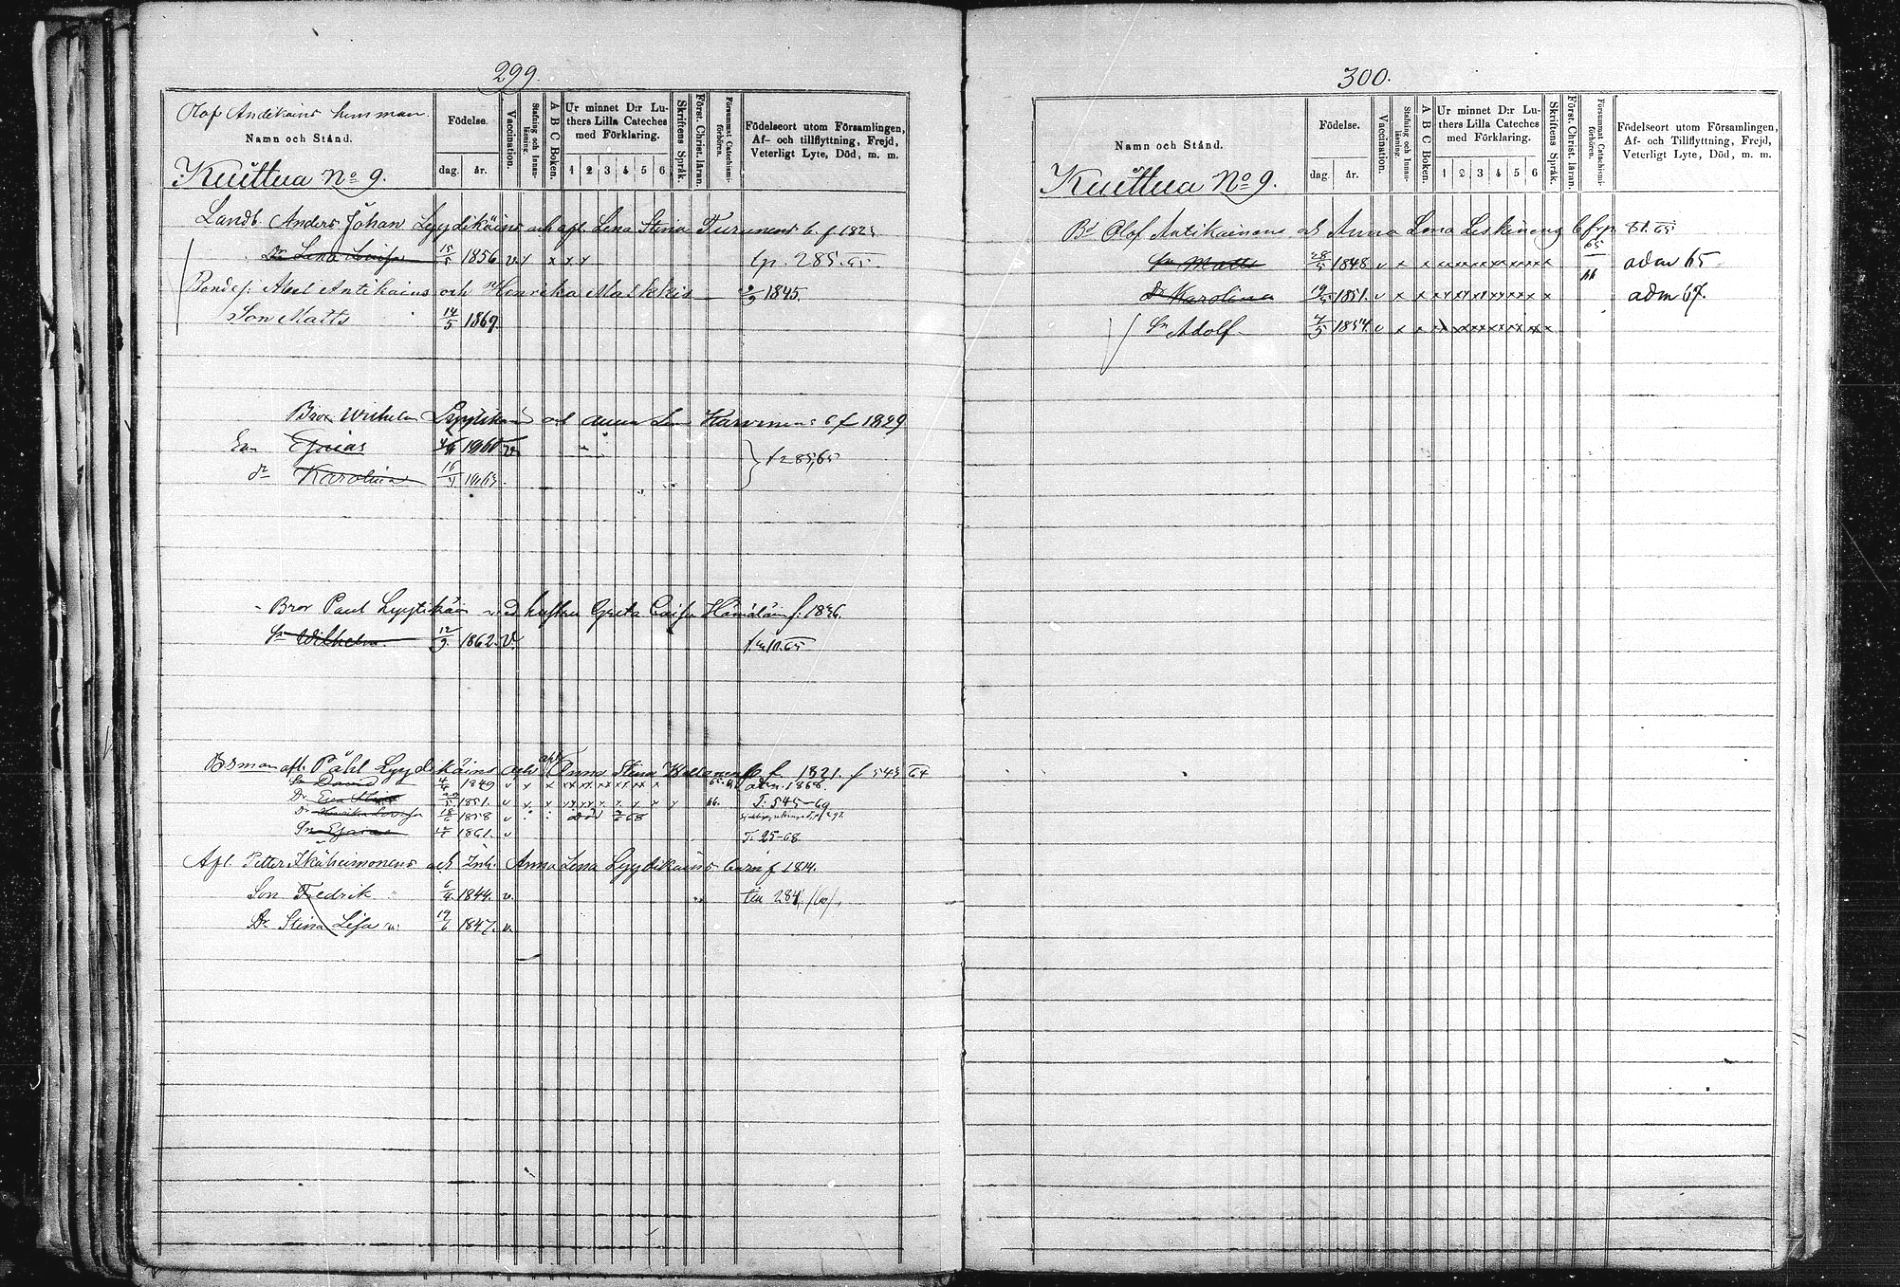 299.
Olof Andikains hemman.
Namn och Stånd.
Födelse.
dag. år.
Vaccination.
Stafning och Innanläsning.
A B C Boken.
Ur minnet D:r Luthers Lilla Cateches med Förklaring.
1 2 3 4 5 6
Skriftens Språk.
Först. Christ. läran.
Försummat Catechismiförhören.
Födelseort utom Församlingen, Af- och tillflyttning, Frejd, Veterligt Lyte, Död, m. m.
Kuittua No 9.
Landb. Anders Johan Lyydikäins och afl. Lena Stina Turunens b. f 1823
Dr Lena Lovisa 15/5 1856 v x x x x p. 285. 65.
Bonde f. Abel Antikains och Henrika Makkkis 1845.
Son Matts 14/5 1869
Bror Wilhelm Lyytikäins och Anna Lena Karvinens b f 1829
Son Esaias 1860 v
dr Karolina 1863 285, 65
Bror Paul Lyytikäin och hustru Greta Caisa Hämäläin f. 1836.
Sn Wilhelm 12/9 1862 v. 65
afl. Påhl Lyydikäins och Anna Stina f. 1821. f 543 64
Sn David 1849 v x x xx xx xx xx x adm. 1868.
Dr Eva Stina 1851. v x x x x x x T. 545-69
Dr Henrika Lovisa 18/6 1858 v död 68
Sn Esaias 1861. v T. 25-68
Afl. Petter Ikäheimonens och Enk. Anna Lena Lyydikäins barn f 1814.
Son Fredrik 6/4 1844. v. till 284
Dr Stina Lisa 19/6 1847. v.
300.
Namn och Stånd.
Födelse.
dag. år.
Vaccination.
Stafning och Innanläsning.
A B C Boken.
Ur minnet D:r Luthers Lilla Cateches med Förklaring.
1 2 3 4 5 6
Skriftens Språk.
Först. Christ. läran.
Försummat Catechismiförhören.
Födelseort utom Församlingen, Af- och Tillflyttning, Frejd, Veterligt Lyte, Död, m. m.
Kuittua No 9.
Bd Olof Antikainens och Anna Lena Leskinens b
Sn Matts 28/5 1848 v x x 65 adm 65
Dr Karolina 1851. v x x 66 adm 67.
Sn Adolf 1854. v x x